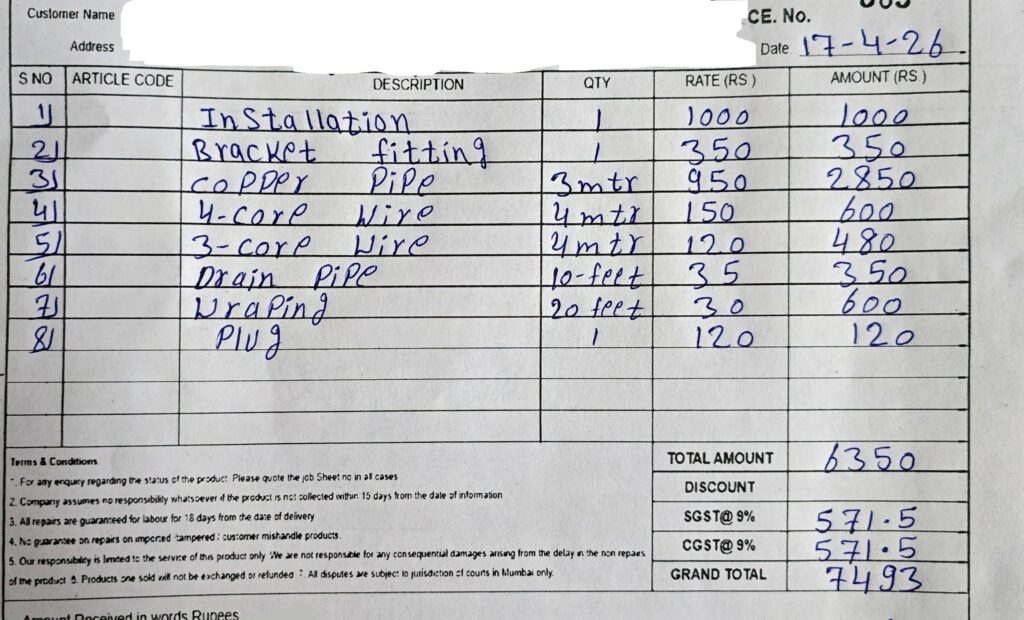 Customer Name
CE. No.
Address
Date 17-4-26
S NO ARTICLE CODE DESCRIPTION QTY RATE (RS) AMOUNT (RS)
1) Installation 1 1000 1000
2) Bracket fitting 1 350 350
3) copper Pipe 3 mtr 950 2850
4) 4-core Wire 4 mtr 150 600
5) 3-core Wire 4 mtr 120 480
6) Drain Pipe 10-feet 35 350
7) Wraping 20 feet 30 600
8) Plug 1 120 120
TOTAL AMOUNT 6350
DISCOUNT
SGST@ 9% 571.5
CGST@ 9% 571.5
GRAND TOTAL 7493
Terms & Conditions
1. For any enquiry regarding the status of the product. Please quote the job Sheet no in all cases
2. Company assumes no responsibility whatsoever if the product is not collected within 15 days from the date of information
3. All repairs are guaranteed for labour for 18 days from the date of delivery
4. No guarantee on repairs on imported tampered / customer mishandle products.
5. Our responsibility is limited to the service of this product only We are not responsible for any consequential damages arising from the delay in the non repairs
of the product Products one sold will not be exchanged or refunded 7. All disputes are subject to jurisdiction of courts in Mumbai only.
Amount Received in words Rupees